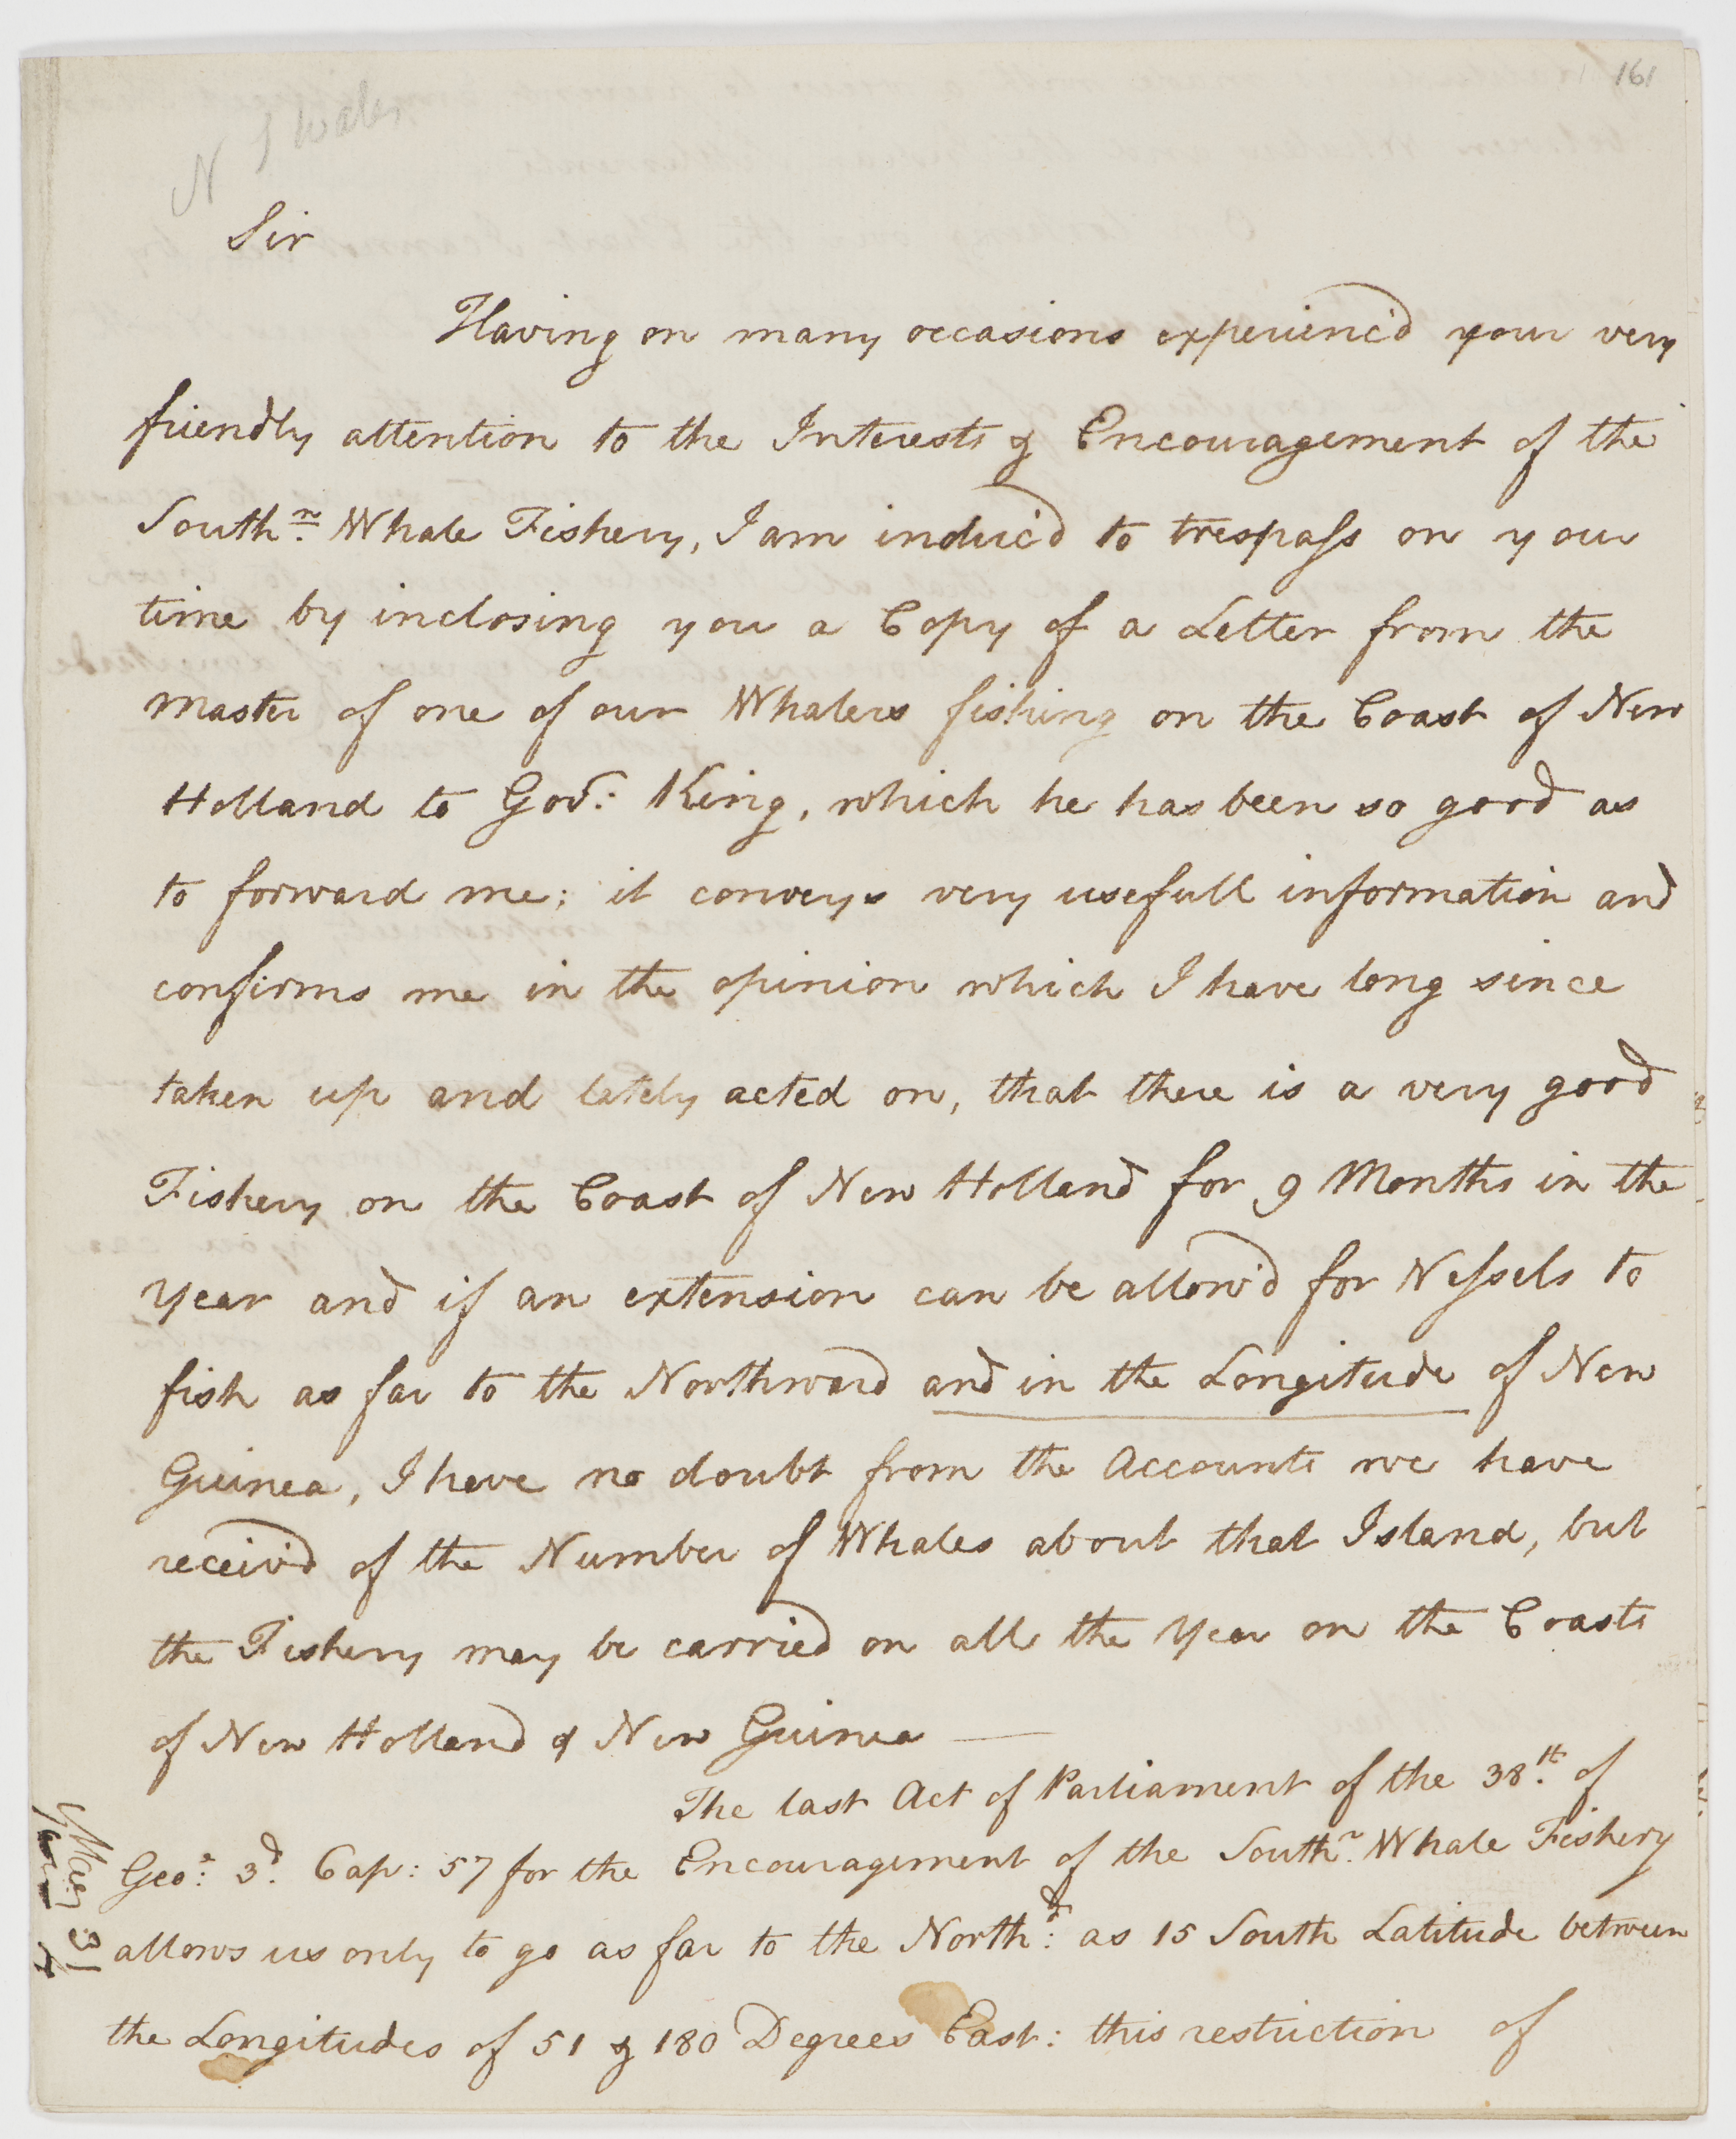 161
N S Wales
Sir
Having on many occasions experienc'd your very
friendly attention to the Interests & Encouragement of the
South.n Whale Fishery, I am induc'd to trespass on your
time by inclosing you a Copy of a Letter from the
Master of one of our Whalers fishing on the Coast of New
Holland to Gov.r King, which he has been so good as
to forward me; it conveys very usefull information and
confirms me in the opinion which I have long since
taken up and lately acted on, that there is a very good
Fishery on the Coast of New Holland for 9 Months in the
Year and if an extension can be allow'd for Vessels to
fish as far to the Northward and in the Longitude of New
Guinea, I have no doubt from the Accounts we have
receiv'd of the Number of Whales about that Island, but
the Fishery may be carried on all the Year on the Coasts
of New Holland & New Guinea —
The last Act of Parliament of the 38.th of
Geo:e 3.d Cap: 57 for the Encouragement of the South.n Whale Fishery
allows us only to go as far to the North:d as 15 South Latitude between
the Longitudes of 51 & 180 Degrees East: this restriction of
31